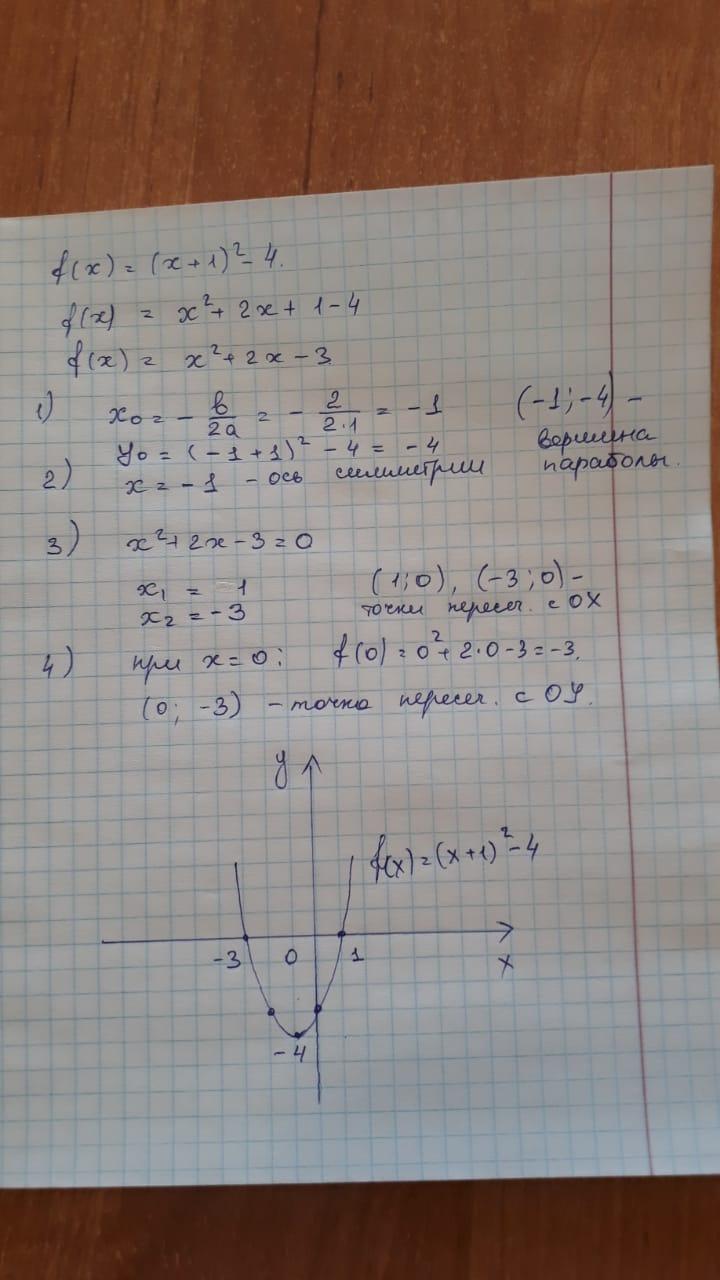 f(x) = (x+1)² - 4.
f(x) = x² + 2x + 1 - 4
f(x) = x² + 2x - 3
1) x₀ = - в/2a = - 2/2·1 = -1 (-1; -4) -
y₀ = (-1+1)² - 4 = -4 вершина
2) x = -1 - ось симметрии параболы.
3) x² + 2x - 3 = 0
x₁ = 1 (1; 0), (-3; 0) -
x₂ = -3 точки пересеч. с OX
4) при x = 0: f(0) = 0² + 2·0 - 3 = -3.
(0; -3) - точка пересеч. с OY.
y
f(x) = (x+1)² - 4
-3 0 1 x
-4